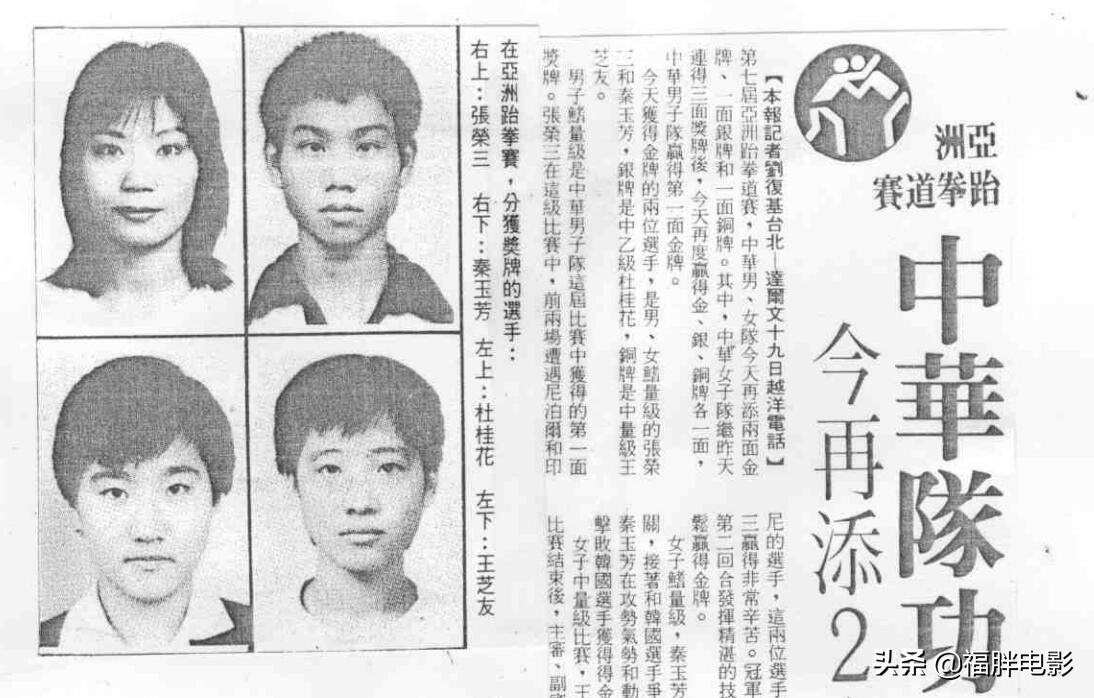 亞洲
跆拳道賽
中華隊功
今再添2
【本報記者劉復基台北—達爾文十九日越洋電話】
第七屆亞洲跆拳道賽,中華男、女隊今天再添兩面金
牌、一面銀牌和一面銅牌。其中,中華女子隊繼昨天
連得三面獎牌後,今天再度贏得金、銀、銅牌各一面,
中華男子隊贏得第一面金牌。
今天獲得金牌的兩位選手,是男、女鰭量級的張榮
三和秦玉芳,銀牌是中乙級杜桂花,銅牌是中量級王
芝友。
男子鰭量級是中華男子隊這屆比賽中獲得的第一面
獎牌。張榮三在這級比賽中,前兩場遭遇尼泊爾和印
尼的選手,這兩位選手
三贏得非常辛苦。冠軍
第二回合發揮精湛的技
鬆贏得金牌。
女子鰭量級,秦玉芳
關,接著和韓國選手爭
秦玉芳在攻勢氣勢和動
擊敗韓國選手獲得得金
女子中量級比賽,王
比賽結束後,主審、副
在亞洲跆拳賽,分獲獎牌的選手:
右上:張榮三 右下:秦玉芳 左上:杜桂花 左下:王芝友
头条 @福胖电影